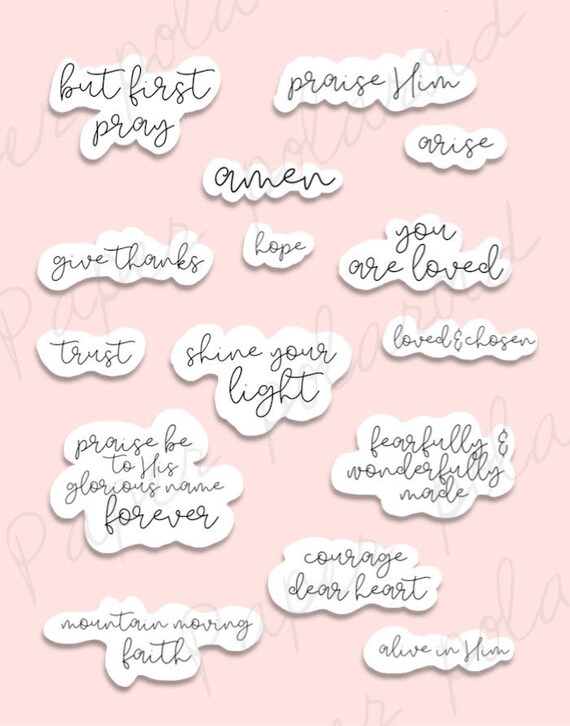 but first
pray
praise Him
arise
amen
give thanks
hope
you
are loved
trust
shine your
light
loved & chosen
praise be
to His
glorious name
forever
fearfully &
wonderfully
made
courage
dear heart
mountain moving
faith
alive in Him
Paper polaroid
Paper polaroid
Paper polaroid